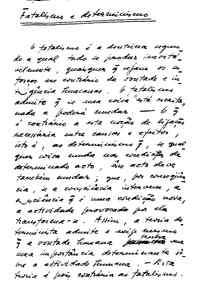 Fatalismo e determinismo
O fatalismo é a doutrina segun-
do a qual tudo se produz inevità-
velmente, quaisquer q̃ sejam os es-
forços em contrário da vontade e in-
teligência humanas. O fatalismo
admite q̃ se uma coisa está escrita,
nada a poderá mudar. — O q̃
é contrário a esta noção de ligação
necessária entre causas e efeitos,
isto é, ao determinismo q̃, se qual-
quer coisa muda na condição de
determinado acto, êste acto deve
também mudar; q̃, por consequên-
cia, se a consciência intervem, a
consciência q̃ é uma condição nova,
a actividade provocada por ela
transforma-a. Assim, a teoria de-
terminista admite e exige mesmo
q̃ a vontade humana tenha
uma importância determinante so-
bre a actividade humana. — Esta
teoria é pois contrária ao fatalismo.